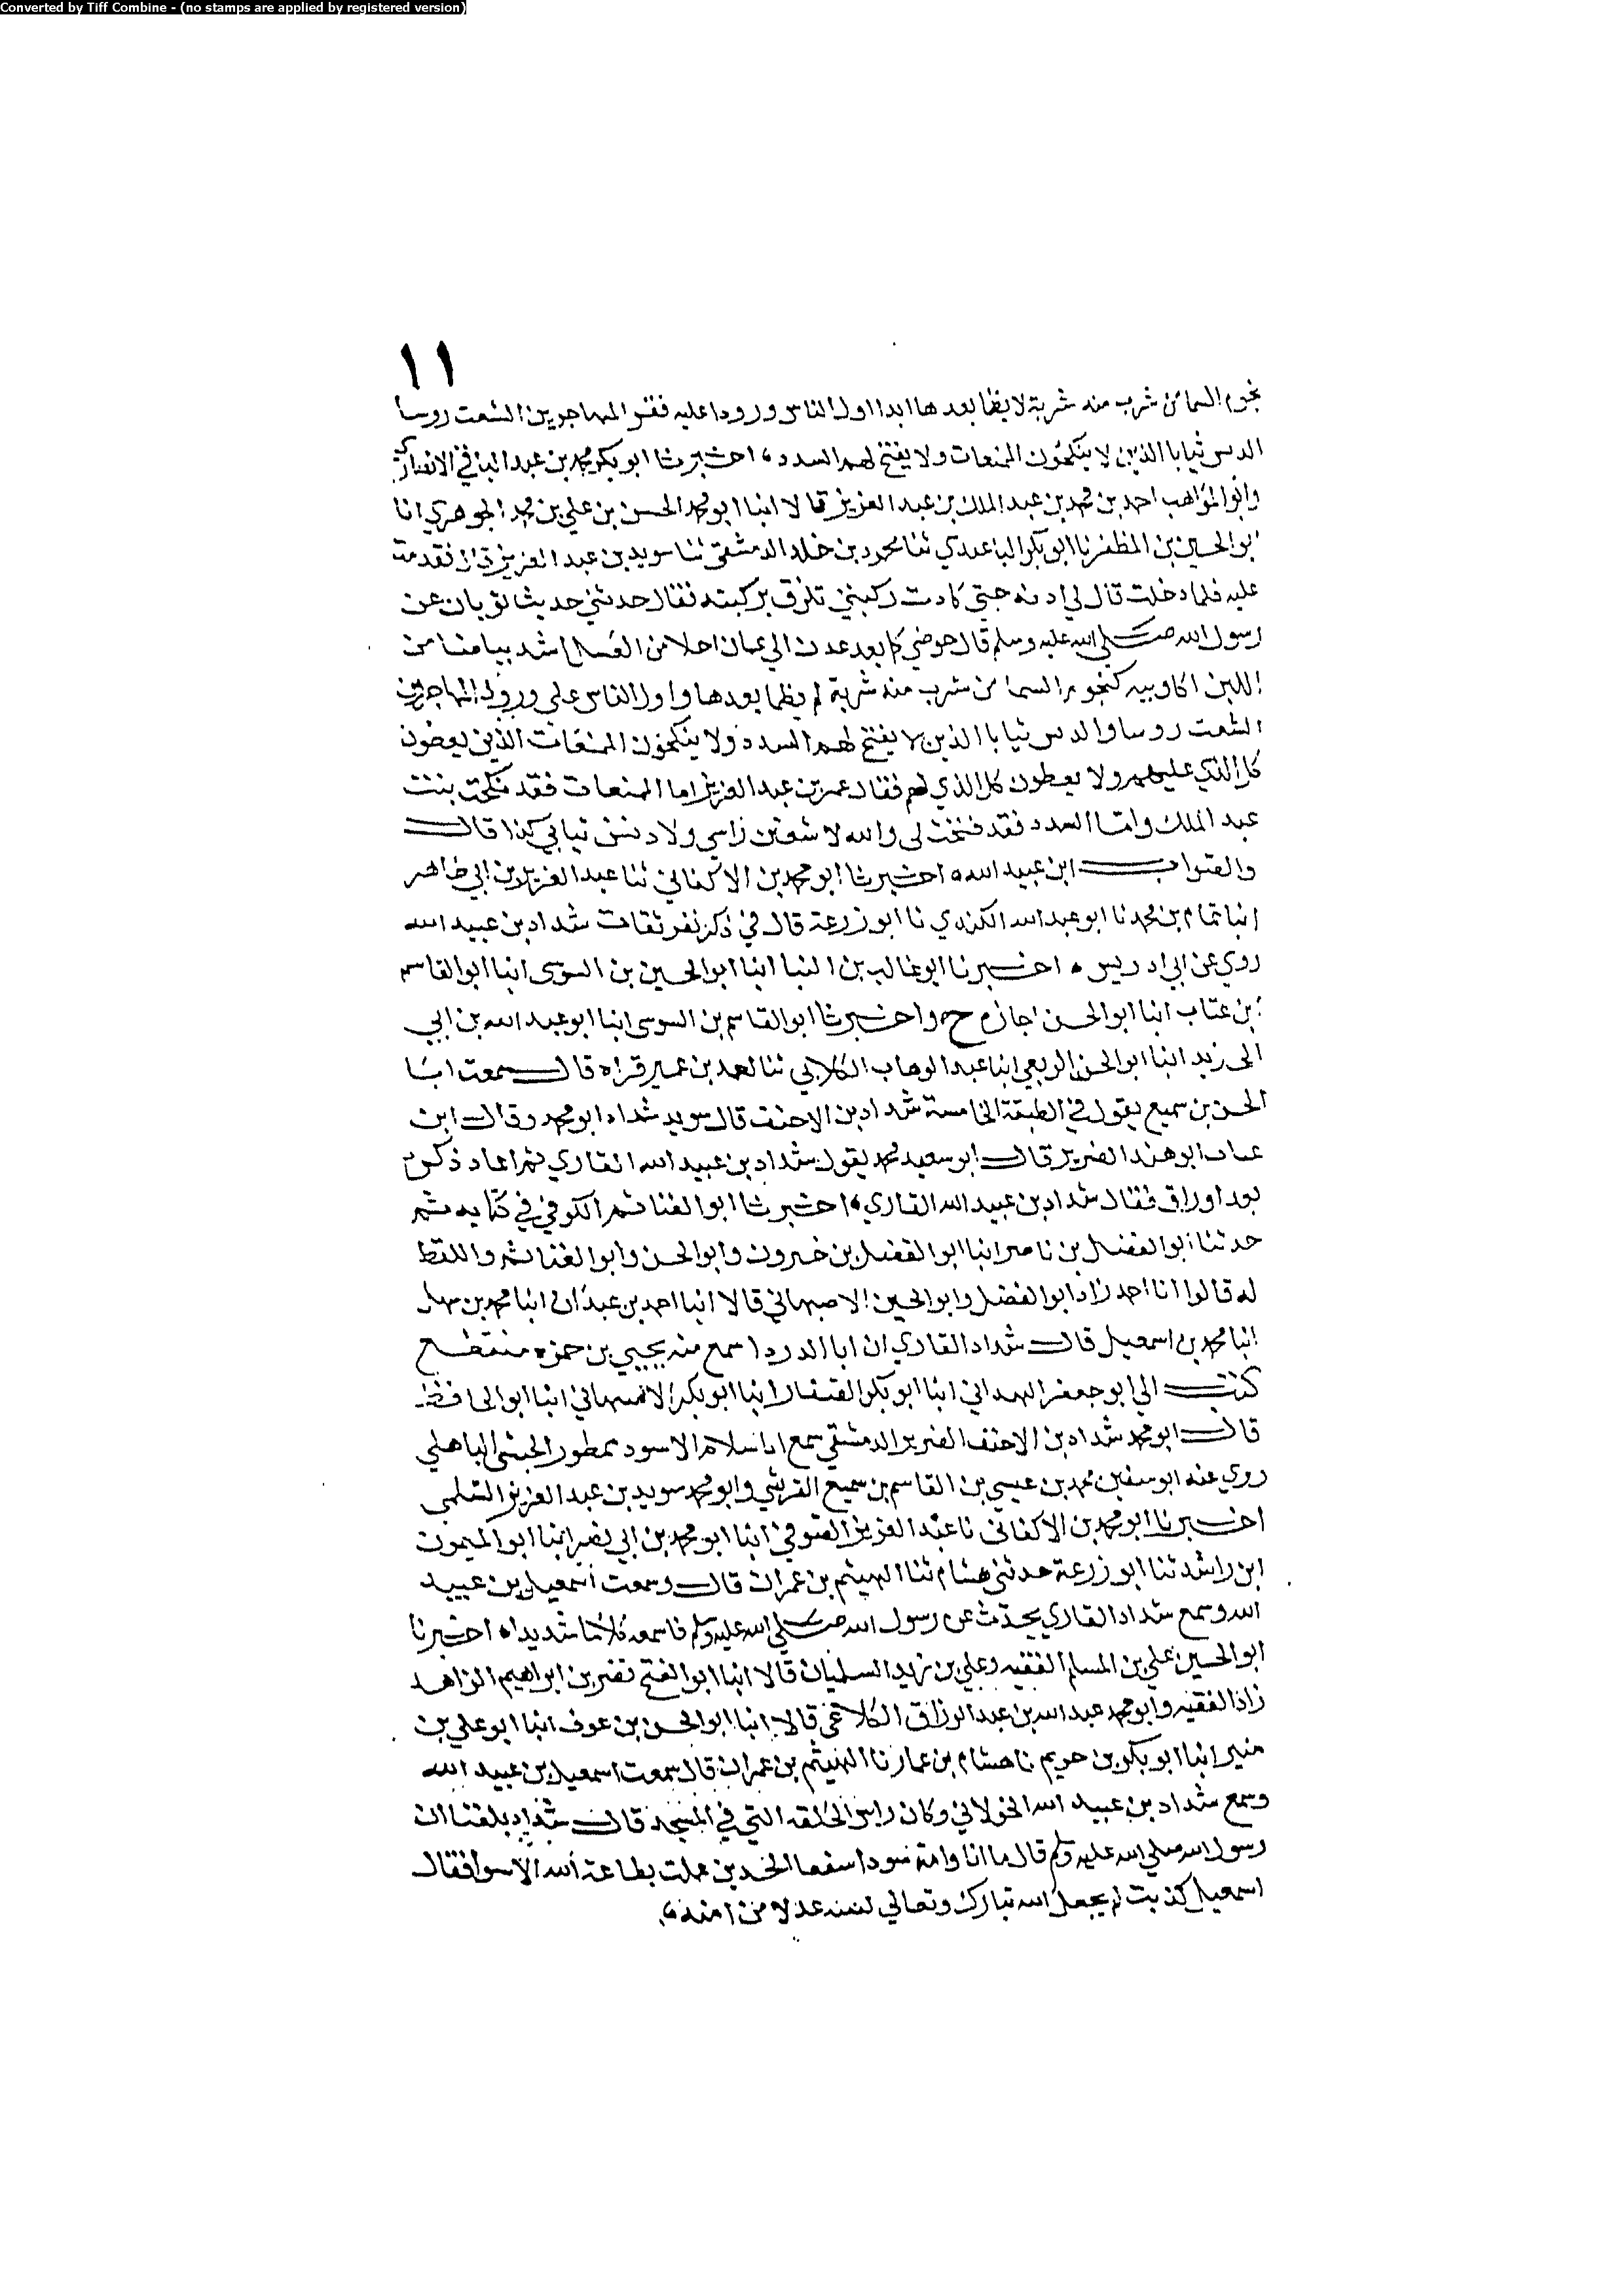 Converted by Tiff Combine - (no stamps are applied by registered version)
١١
نجوم السما من شرب منه شربة لا يظما بعدها ابدا اول الناس ورودا عليه فقرا المهاجرين الشعث روسا
الدنس ثيابا الذين لا ينكحون المنعمات ولا يفتح لهم السدد اخبرنا ابو بكر محمد بن عبد الباقي الانصاري
وابو المواهب احمد بن محمد بن عبد الملك بن عبد العزيز قالا انبا ابو محمد الحسن بن علي بن محمد الجوهري انا
ابو الحسين بن المظفر نا ابو بكر الباغندي ثنا محمود بن خلد الدمشقي ثنا سويد بن عبد العزيز قال فقدمت
عليه فلما دخلت قال لي ادنه حتى كادت ركبتي تلزق بركبته فقال حدثني حديث ثوبان عن
رسول الله صلى الله عليه وسلم قال حوضي كما بعد عدن الي عمان احلا من العسل اشد بياضا من
اللبن اكاويبه كنجوم السما من شرب منه شربة لم يظما بعدها واول الناس علي ورودا المهاجرين
الشعث روسا والدنس ثيابا الذين لا يفتح لهم السدد ولا ينكحون المنعمات الذين يعطون
كل الذي عليهم ولا يعطون كل الذي لهم فقال عمر بن عبد العزيز اما المنعمات فقد نكحت بنت
عبد الملك واما السدد فقد فتحت لي والله لا شعثن راسي ولا دنسن ثيابي كذا قال
والصواب ابن عبيد الله اخبرنا ابو محمد بن الاكفاني ثنا عبد العزيز بن ابي طاهر
انبا تمام بن محمد نا ابو عبد الله الكندي نا ابو زرعة قال في ذكر نفر ثقات شداد بن عبيد الله
روي عن ابي ادريس اخبرنا ابو غالب بن البنا انبا ابو الحسين بن السوسى انبا ابو القاسم
بن عتاب انبا ابو الحسن اجازه ح واخبرنا ابو القاسم بن السوسى انبا ابو عبد الله بن ابي
الى زيد انبا ابو الحسن الربعي انبا عبد الوهاب الكلابي ثنا احمد بن عمير قراه قال سمعت ابا
الحسن بن سميع يقول في الطبقة الخامسة شداد بن الاحنف قال سويد شداد ابو محمد وقال ابن
عساب ابو هند الضرير قال ابو سعيد محمد يقول شداد بن عبيد الله القاري ثم اعاد ذكره
بعد اوراق فقال شداد بن عبيد الله القاري اخبرنا ابو الغنائم الكوفي في كتابه ثم
حدثنا ابو الفضل بن ناصر انبا ابو الفضل بن خيرون وابو الحسن وابو الغنائم واللفظ
له قالوا انا احمد زاد ابو الفضل وابو الحسين الاصبهاني قالا انبا احمد بن عبدان انبا محمد بن سهل
انبا محمد بن اسمعيل قال شداد القاري ان ابا الدردا سمع منه يحيي بن حمزه منقطع
كتب الي ابو جعفر الهمداني انبا ابو بكر الصفار انبا ابو بكر الاصبهاني انبا ابو الحافظ
قال ابو محمد شداد بن الاحنف الضرير الدمشقي سمع ابا سلام الاسود ممطور الحبشي الباهلي
روي عنه ابو سفين محمد بن عيسي بن القاسم بن سميع القرشي وابو محمد سويد بن عبد العزيز السلمي
اخبرنا ابو محمد بن الاكفانى نا عبد العزيز الصوفي انبا ابو محمد بن ابي نصر انبا ابو الميمون
ابن راشد ثنا ابو زرعة حدثني هشام ثنا الهيثم بن عمران قال وسمعت اسمعيل بن عبيد
الله وسمع شداد القاري يحدث عن رسول الله صلى الله عليه وسلم فاسمعه كلاما شديدا اخبرنا
ابو الحسين علي بن المسلم الفقيه وعلي بن زيد السلميان قالا انبا ابو الفتح نصر بن ابراهيم الزاهد
زاد الفقيه وابو محمد عبد الله بن عبد الرزاق الكلاعي قالا انبا ابو الحسن بن عوف انبا ابو علي بن
منير انبا ابو بكر بن خريم نا هشام بن عمار نا الهيثم بن عمران قال سمعت اسمعيل بن عبيد الله
وسمع شداد بن عبيد الله الخولاني وكان راس الحلقه التي في المسجد قال شداد بلغنا ان
رسول الله صلي الله عليه وسلم قال ما انا وامة سودا سفعا الخدين عملت بطاعة الله الا سوا فقال
اسمعيل كذبت لم يجعل الله تبارك وتعالي لنبيه عدلا من امته